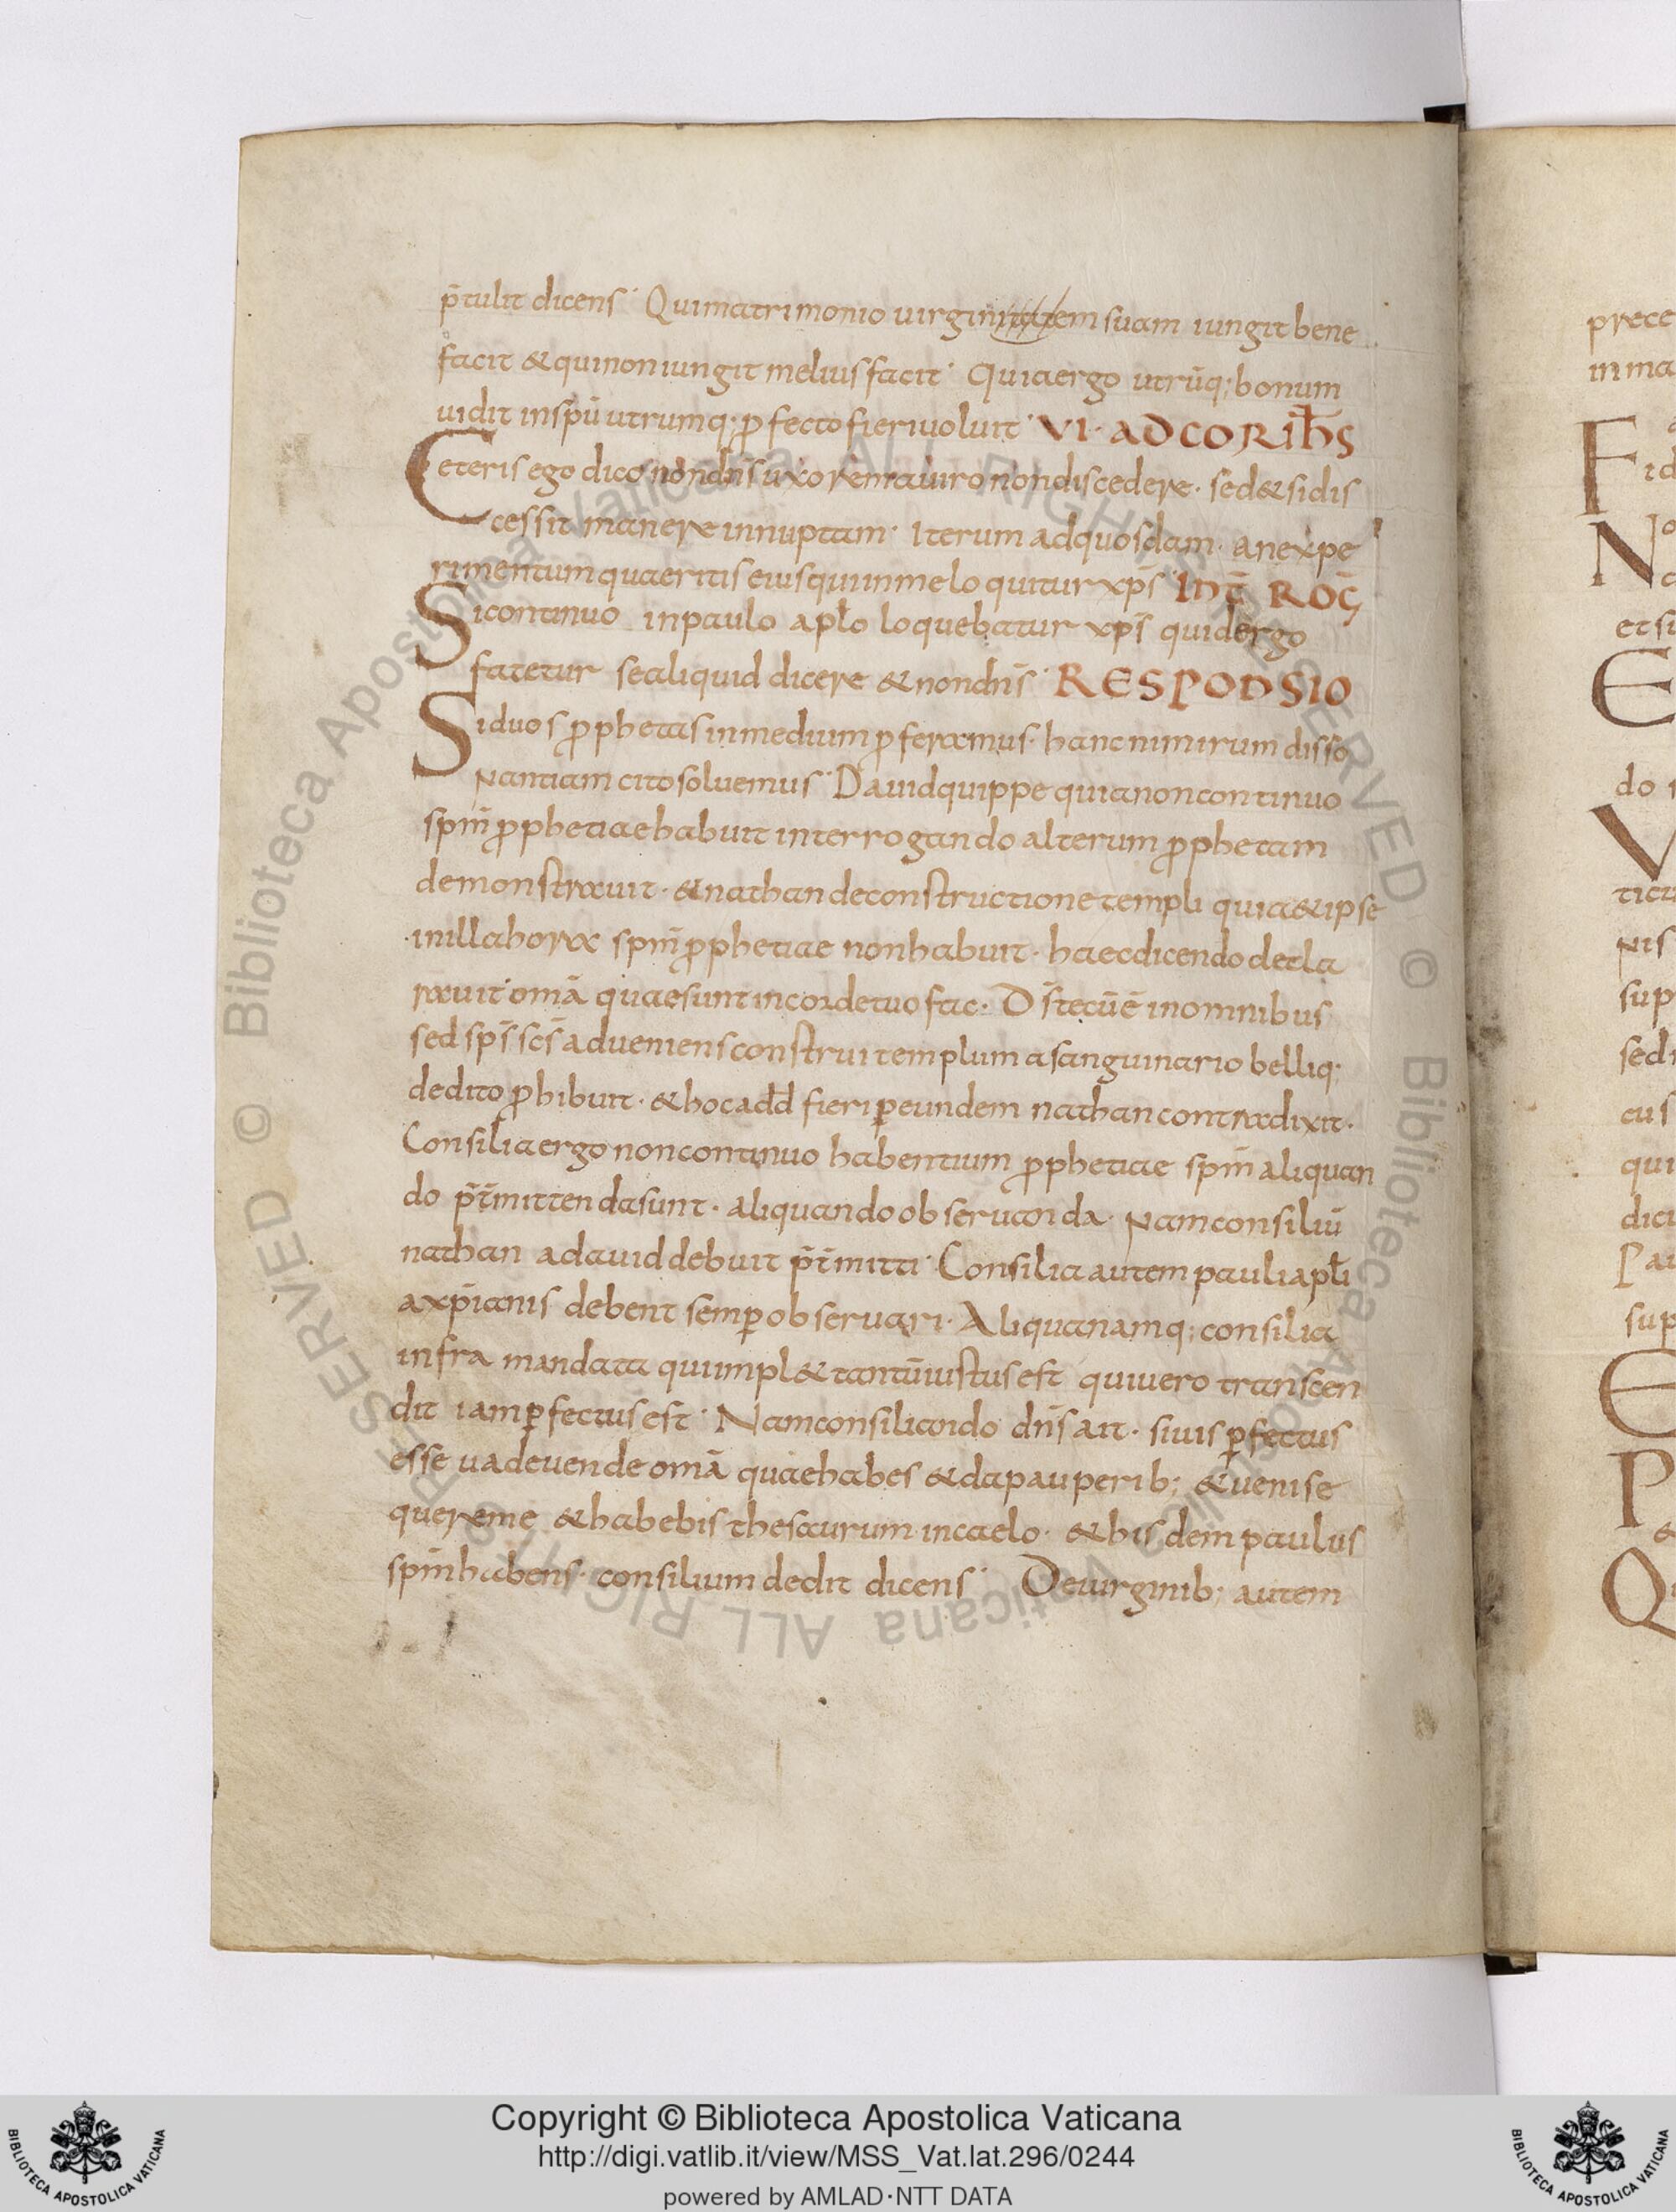 p̄tulit dicens· Qui matrimonio uirginitatem suam iungit bene
facit & qui non iungit melius facit· Quia ergo utrūq; bonum
uidit in spū utrumq; ꝓfecto fieri uoluit· VI· AD CORIħS
Ceteris ego dico non dn̄s uxorem a uiro non discedere· sed & si dis
cessit manere innuptam· Iterum ad quosdam· an expe
rimentum quaeritis eius qui in me loquitur xp̄s INT̄ ROḠ
Si continuo in paulo apl̄o loquebatur xp̄s quid ergo
fatetur se aliquid dicere & non dn̄s· RESPONSIO
Si duos ꝓphetas in medium ꝓferamus· hanc nimirum disso
nantiam cito soluemus· Dauid quippe quia non continuo
spm̄ ꝓphetiae habuit interrogando alterum ꝓphetam
demonstrauit· & nathan de constructione templi quia & ipse
in illa hora spm̄ ꝓphetiae non habuit· haec dicendo decla
rauit· omā quae sunt in corde tuo fac· Ds̄ tecū ē in omnibus
sed sp̄s sc̄s adueniens construi templum a sanguinario belliq;
dedito ꝓhibuit· & hoc a dd̄ fieri ꝑ eundem nathan contradixit·
Consilia ergo non continuo habentium ꝓphetiae spm̄ aliquan
do p̄t̄mittenda sunt· aliquando obseruanda· Nam consiliū
nathan a dauid debuit p̄t̄mitti· Consilia autem pauli apl̄i
a xp̄ianis debent semꝑ obseruari· Aliqua namq; consilia
infra mandata qui impl& tantū iustus est qui uero transcen
dit iam ꝑfectus est· Nam consiliando dn̄s ait· si uis ꝑfectus
esse uade uende omā quae habes & da pauperib; & ueni se
quere me & habebis thesaurum in caelo· & hisdem paulus
spm̄ habens· consilium dedit dicens· De uirginib; autem
prece
in ma
Copyright © Biblioteca Apostolica Vaticana
http://digi.vatlib.it/view/MSS_Vat.lat.296/0244
powered by AMLAD·NTT DATA
BIBLIOTECA APOSTOLICA VATICANA
BIBLIOTECA APOSTOLICA VATICANA